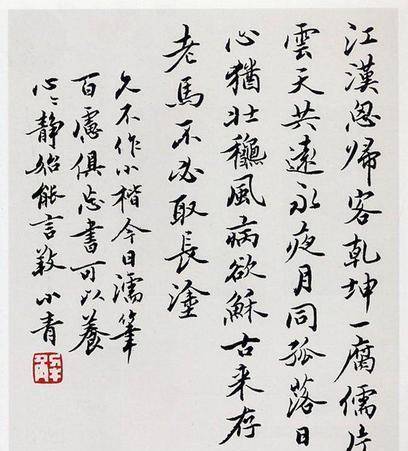 江漢思歸客乾坤一腐儒片
雲天共遠永夜月同孤落日
心猶壯龝風病欲穌古来存
老馬不必取長塗
久不作小楷今日濡筆
百慮俱忘書可以養
心〻靜始能言小青